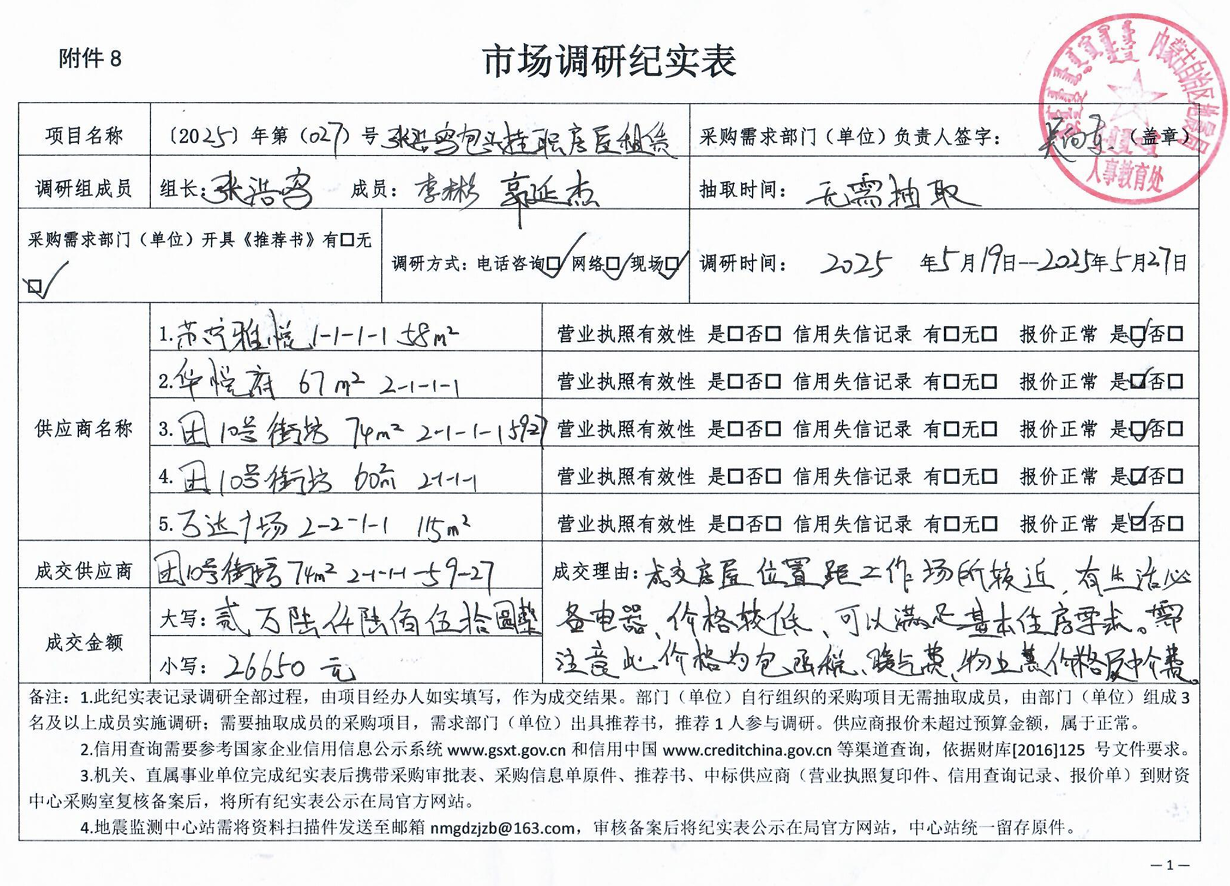 附件 8
市场调研纪实表
项目名称 （2025）年第（027）号 张浩客包头挂职房屋租赁 采购需求部门（单位）负责人签字： （盖章）
内蒙古自治区地震局
人事教育处
调研组成员 组长：张浩客 成员：李彬彬 郭延杰 抽取时间： 无需抽取
采购需求部门（单位）开具《推荐书》有□无
□✓
调研方式：电话咨询□✓ 网络□✓ 现场□✓ 调研时间： 2025 年5月19日--2025年5月27日
供应商名称
1.苏宁雅悦 1-1-1-1 58m² 营业执照有效性 是□否□ 信用失信记录 有□无□ 报价正常 是□✓否□
2.华悦府 67m² 2-1-1-1 营业执照有效性 是□否□ 信用失信记录 有□无□ 报价正常 是□✓否□
3.团10号街坊 74m² 2-1-1-1 5927 营业执照有效性 是□否□ 信用失信记录 有□无□ 报价正常 是□✓否□
4.团10号街坊 60㎡ 2-1-1-1 营业执照有效性 是□否□ 信用失信记录 有□无□ 报价正常 是□✓否□
5.万达广场 2-2-1-1 115m² 营业执照有效性 是□否□ 信用失信记录 有□无□ 报价正常 是□✓否□
成交供应商 团10号街坊 74m² 2-1-1-1-59-27
成交金额
大写：贰万陆仟陆佰伍拾圆整
小写：26650 元
成交理由：成交房屋位置距工作场所较近，有生活必
备电器、价格较低、可以满足基本住房需求。需
注意此价格为包函税、暖气费、物业费价格及中介费。
备注：1.此纪实表记录调研全部过程，由项目经办人如实填写，作为成交结果。部门（单位）自行组织的采购项目无需抽取成员，由部门（单位）组成 3
名及以上成员实施调研；需要抽取成员的采购项目，需求部门（单位）出具推荐书，推荐 1 人参与调研。供应商报价未超过预算金额，属于正常。
2.信用查询需要参考国家企业信用信息公示系统 www.gsxt.gov.cn 和信用中国 www.creditchina.gov.cn 等渠道查询，依据财库[2016]125 号文件要求。
3.机关、直属事业单位完成纪实表后携带采购审批表、采购信息单原件、推荐书、中标供应商（营业执照复印件、信用查询记录、报价单）到财资
中心采购室复核备案后，将所有纪实表公示在局官方网站。
4.地震监测中心站需将资料扫描件发送至邮箱 nmgdzjzb@163.com，审核备案后将纪实表公示在局官方网站，中心站统一留存原件。
— 1 —